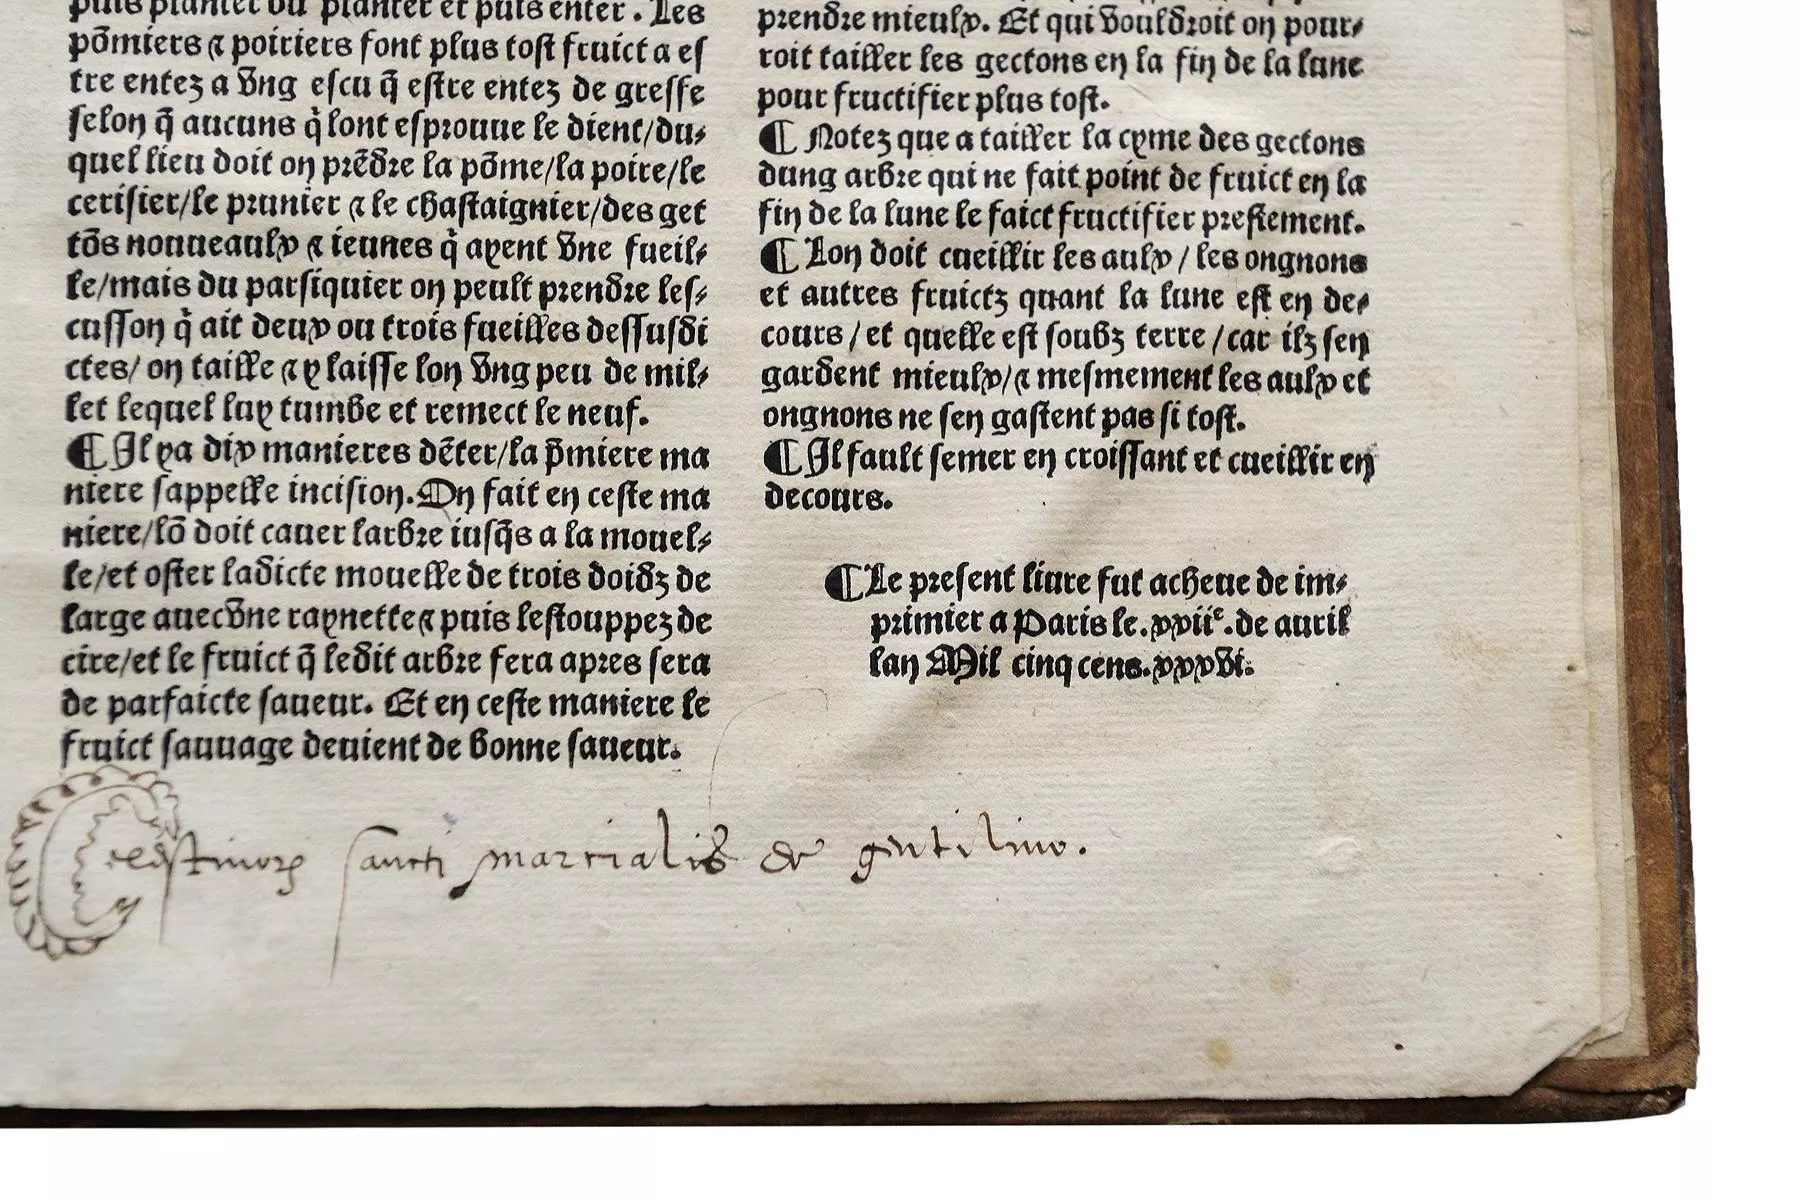 puis planter ou planter et puis enter. Les
põmiers ⁊ poiriers font plus tost fruict a es
tre entez a vng escu q̃ estre entez de greffe
selon q̃ aucuns q̇ lont esprouue le dient/du⸗
quel lieu doit on prẽdre la põme/la poire/le
cerisier/le prunier ⁊ le chastaignier/des get
tõs nouueaulx ⁊ ieunes q̇ ayent vne fueil⸗
le/mais du parsiquier on peult prendre les⸗
cusson q̇ ait deux ou trois fueilles dessusdi
ctes/on taille ⁊ y laisse lon vng peu de mil⸗
let lequel luy tumbe et remect le neuf.
¶ Il ya dix manieres dẽter/la p̃miere ma
niere sappelle incision. On fait en ceste ma
niere/lõ doit cauer larbre iusq̃s a la mouel⸗
le/et oster ladicte mouelle de trois doidz de
large auecvne raynette ⁊ puis lestouppez de
cire/et le fruict q̃ ledit arbre fera apres sera
de parfaicte saueur. Et en ceste maniere le
fruict sauuage deuient de bonne saueur.
prendre mieulx. Et qui vouldroit on pour⸗
roit tailler les gectons en la fin de la lune
pour fructifier plus tost.
¶ Notez que a tailler la cyme des gectons
dung arbre qui ne fait point de fruict en la
fin de la lune le faict fructifier prestement.
¶ Lon doit cueillir les aulx / les ongnons
et autres fruictz quant la lune est en de⸗
cours/et quelle est soubz terre/car ilz sen
gardent mieulx/⁊ mesmement les aulx et
ongnons ne sen gastent pas si tost.
¶ Il fault semer en croissant et cueillir en
decours.
¶ Le present liure fut acheue de im⸗
primier a Paris le .xxiiᵉ. de auril
lan Mil cinq cens. xxxvi.
Celestinoꝝ sancti marcialis de gentilino.